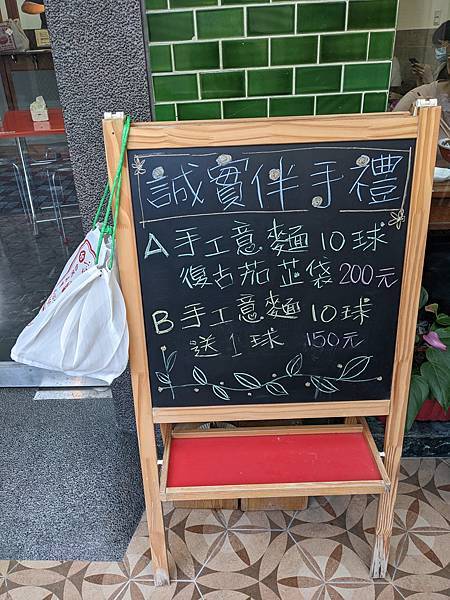 誠實伴手禮
A 手工意麵 10 球
復古茄芷袋 200元
B 手工意麵 10 球
送 1 球 150元